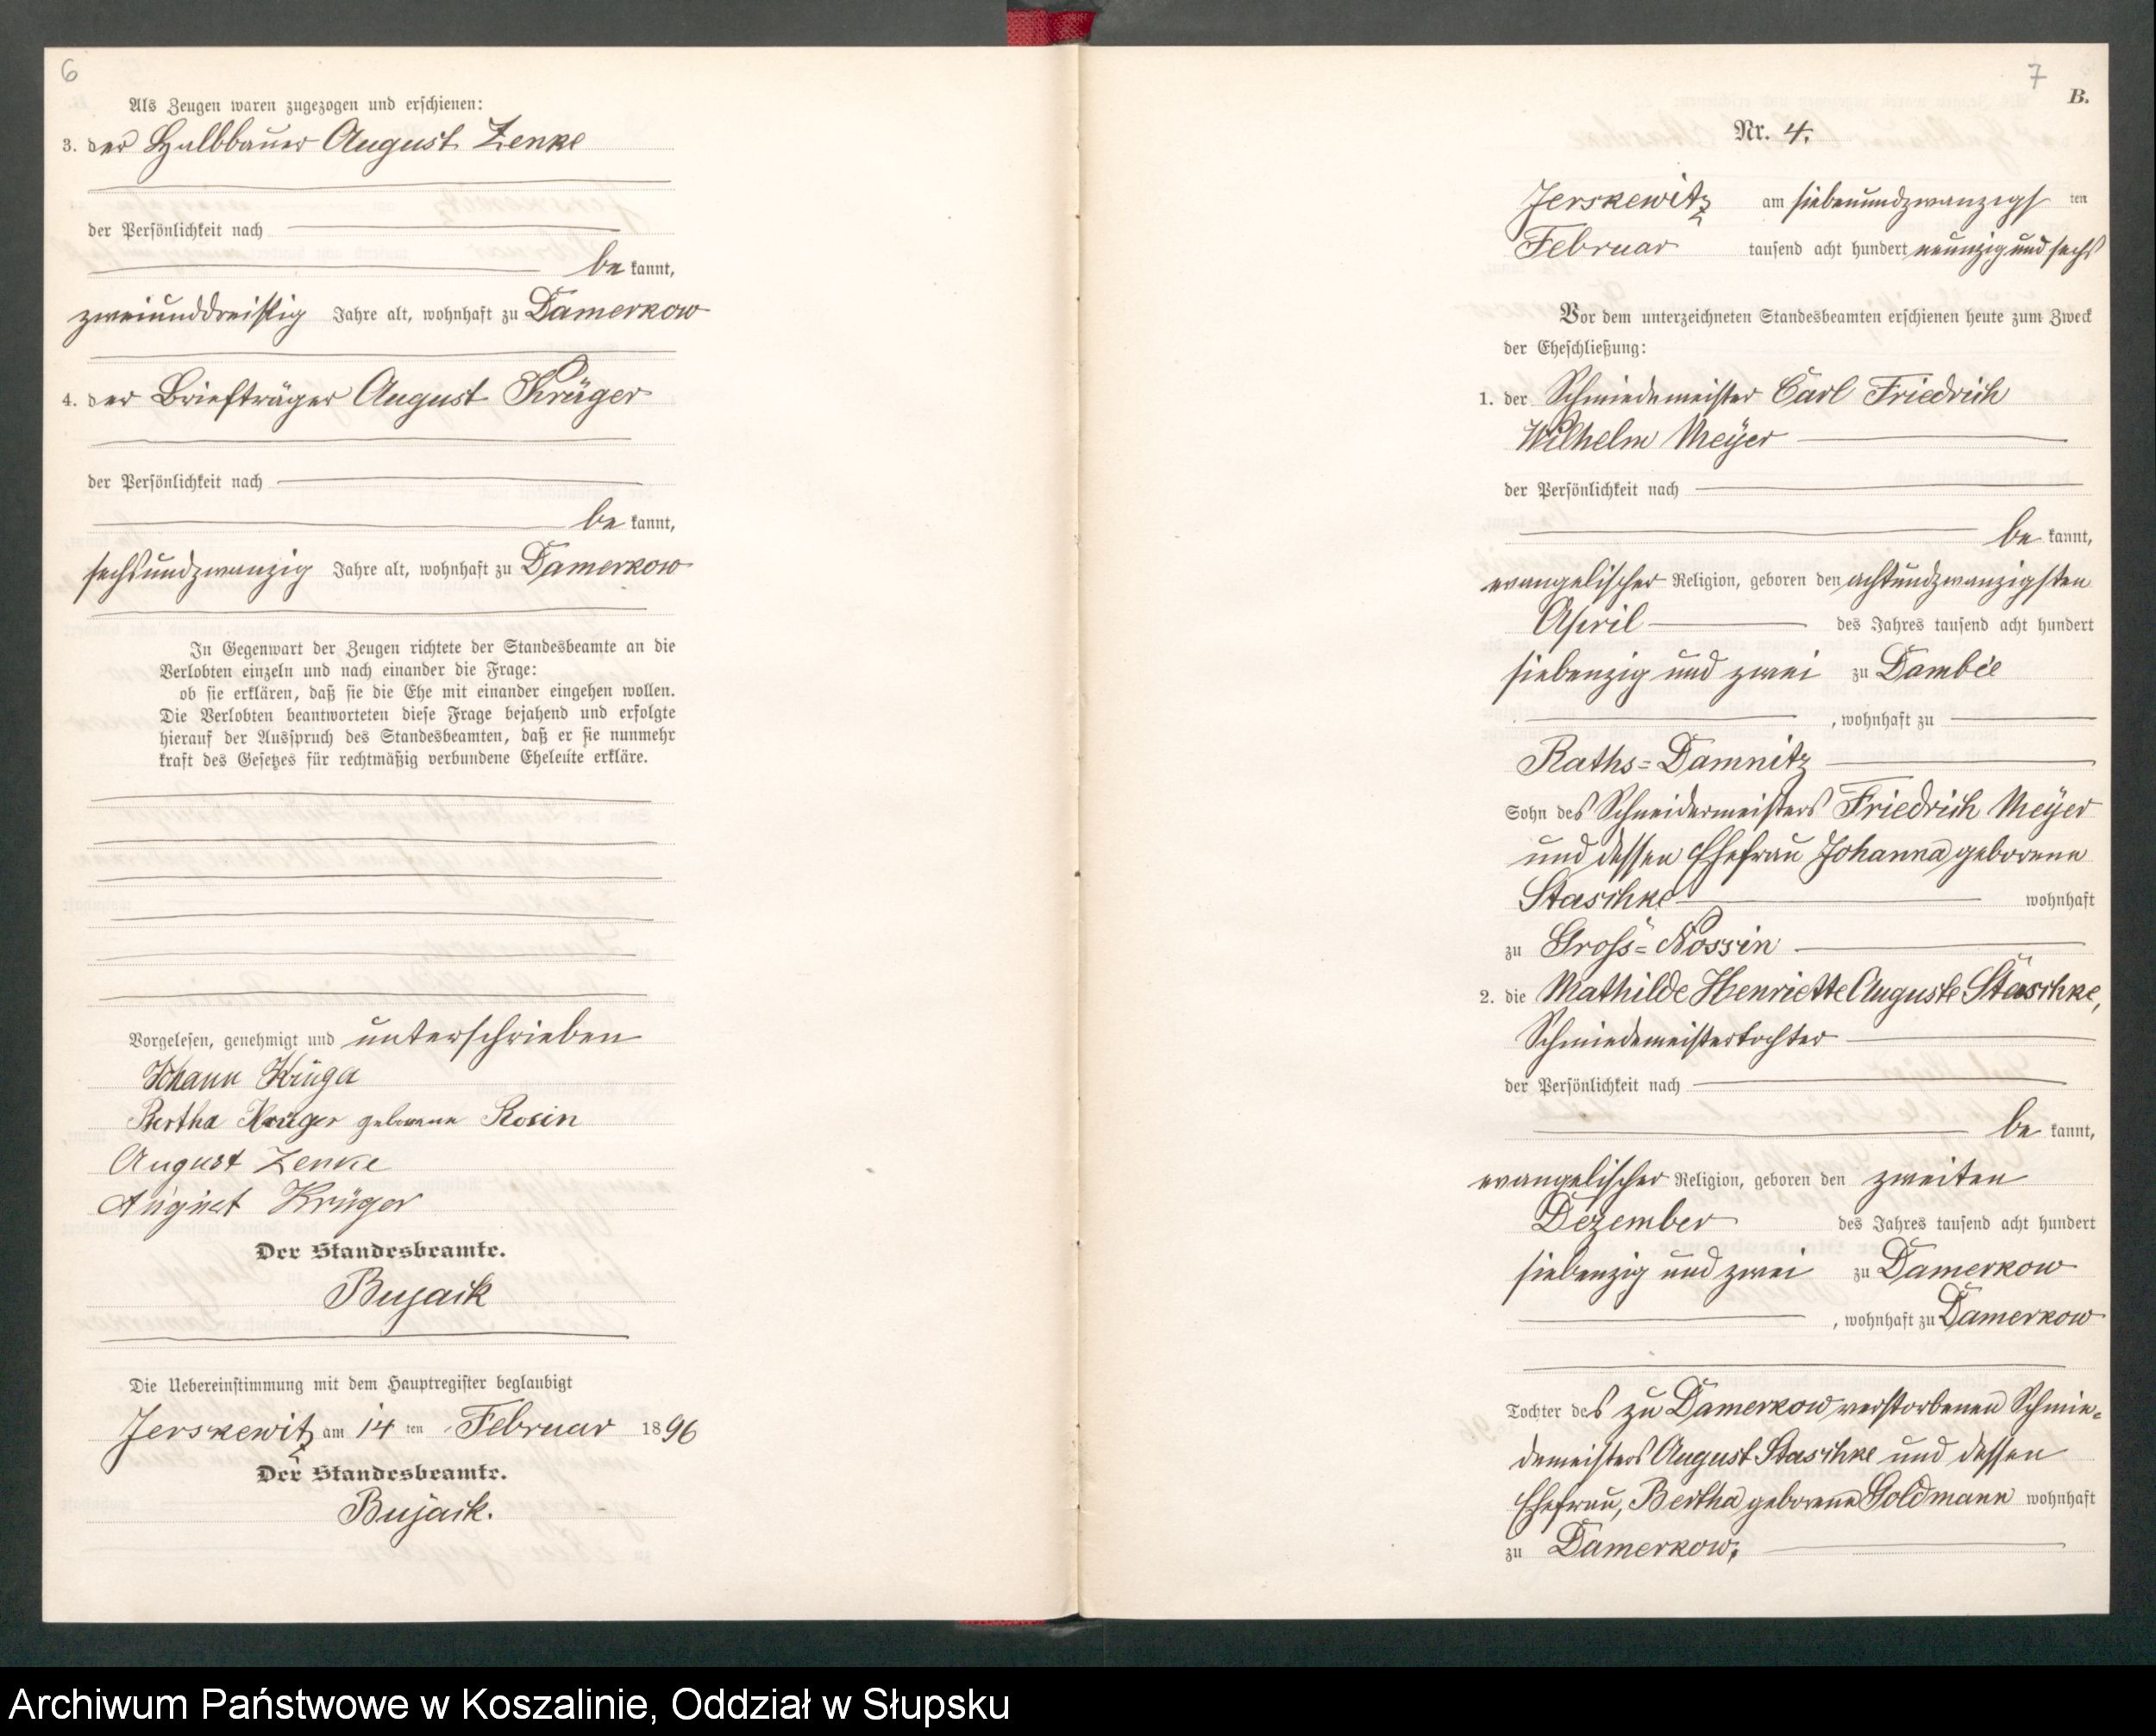 6
Als Zeugen waren zugezogen und erschienen:
3. der Halbbauer August Zenke
der Persönlichkeit nach
be kannt,
zweiunddreißig Jahre alt, wohnhaft zu Damerkow
4. der Briefträger August Krüger
der Persönlichkeit nach
be kannt,
sechsundzwanzig Jahre alt, wohnhaft zu Damerkow
In Gegenwart der Zeugen richtete der Standesbeamte an die
Verlobten einzeln und nach einander die Frage:
ob sie erklären, daß sie die Ehe mit einander eingehen wollen.
Die Verlobten beantworteten diese Frage bejahend und erfolgte
hierauf der Ausspruch des Standesbeamten, daß er sie nunmehr
kraft des Gesetzes für rechtmäßig verbundene Eheleute erkläre.
Vorgelesen, genehmigt und unterschrieben
Johann Krüger
Bertha Krüger geborene Rosin
August Zenke
August Krüger
Der Standesbeamte.
Bujack
Die Uebereinstimmung mit dem Hauptregister beglaubigt
Jerskewitz am 14 ten Februar 1896
Der Standesbeamte.
Bujack.
7
B.
Nr. 4.
Jerskewitz am siebenundzwanzigs ten
Februar tausend acht hundert neunzig und sechs
Vor dem unterzeichneten Standesbeamten erschienen heute zum Zweck
der Eheschließung:
1. der Schmiedemeister Carl Friedrich
Wilhelm Meÿer
der Persönlichkeit nach
be kannt,
evangelischer Religion, geboren den achtundzwanzigsten
April des Jahres tausend acht hundert
siebenzig und zwei zu Dambee
, wohnhaft zu
Raths=Damnitz
Sohn des Schneidermeisters Friedrich Meÿer
und dessen Ehefrau Johanna geborene
Staschke wohnhaft
zu Groß=Nossin
2. die Mathilde Henriette Auguste Staschke,
Schmiedemeistertochter
der Persönlichkeit nach
be kannt,
evangelischer Religion, geboren den zweiten
Dezember des Jahres tausend acht hundert
siebenzig und zwei zu Damerkow
, wohnhaft zu Damerkow
Tochter des zu Damerkow verstorbenen Schmie=
demeisters August Staschke und dessen
Ehefrau, Bertha geborene Goldmann wohnhaft
zu Damerkow.
Archiwum Państwowe w Koszalinie, Oddział w Słupsku